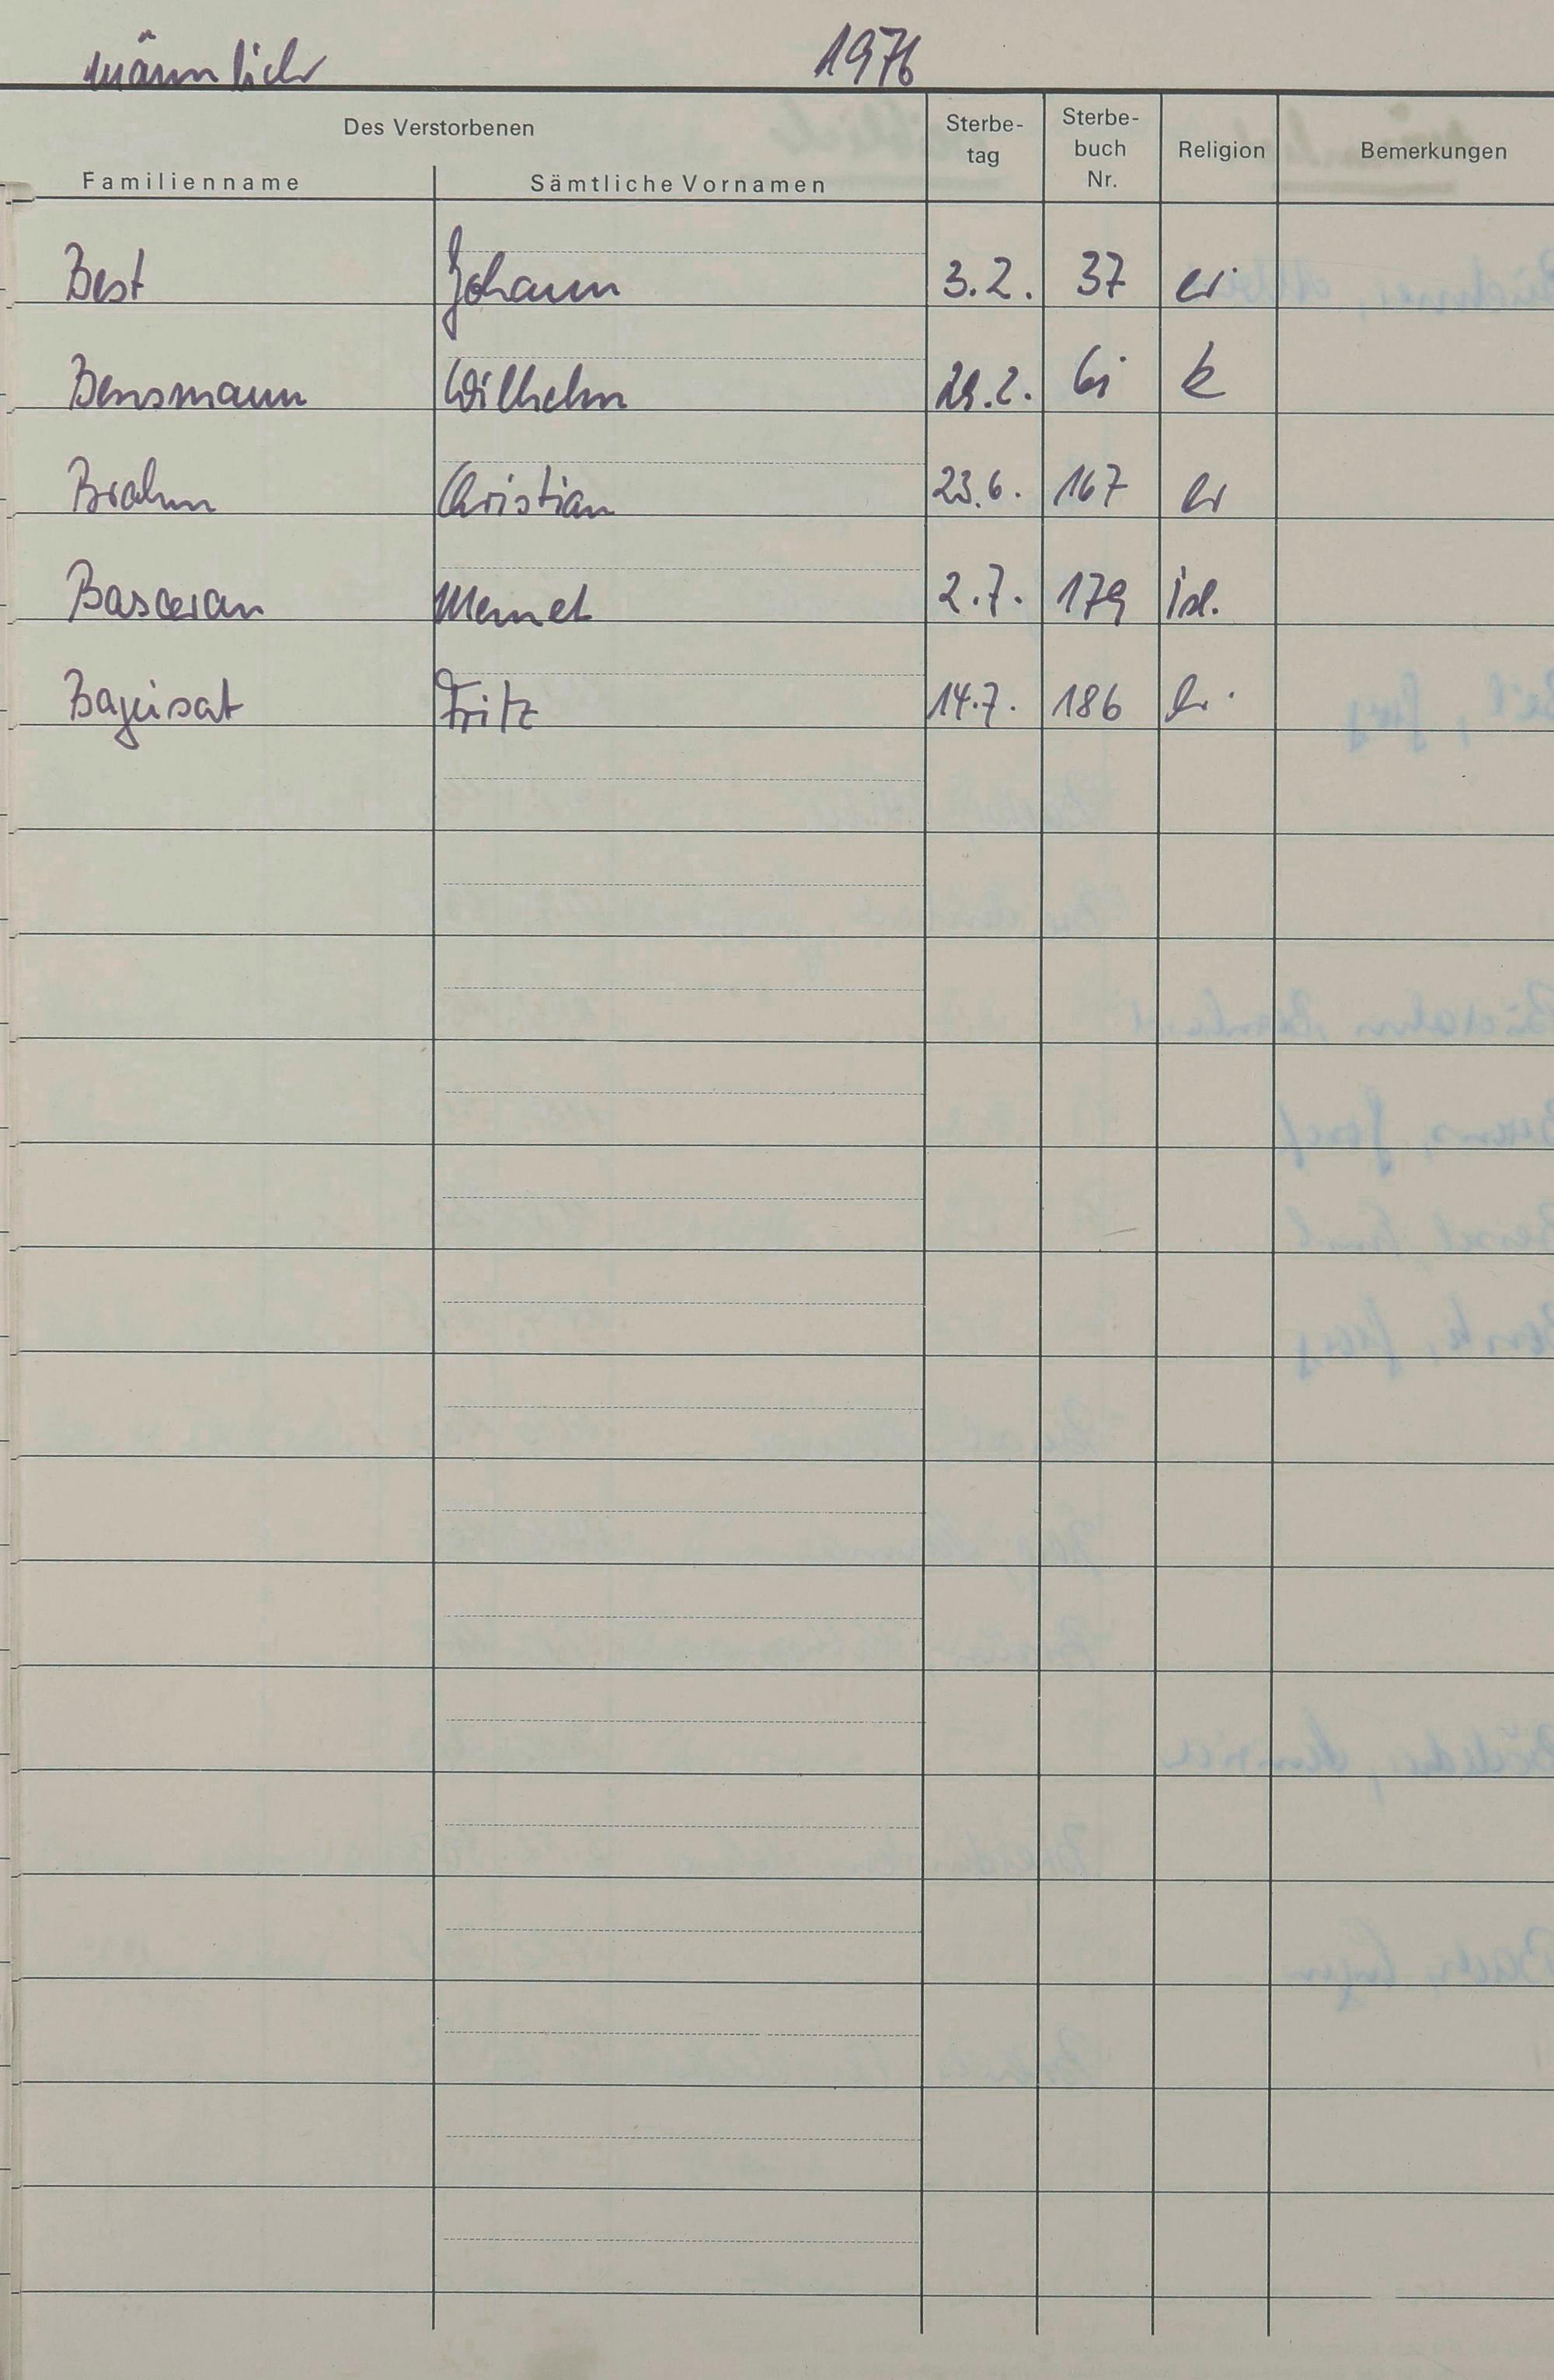 männlich 1976
Des Verstorbenen
Familienname Sämtliche Vornamen Sterbe-tag Sterbe-buch Nr. Religion Bemerkungen
Best Johann 3.2. 37 ev
Bensmann Wilhelm 29.2. k
Brahm Christian 23.6. 167 ev
Basceran Memet 2.7. 179 isl.
Bagusat Fritz 14.7. 186 ev.